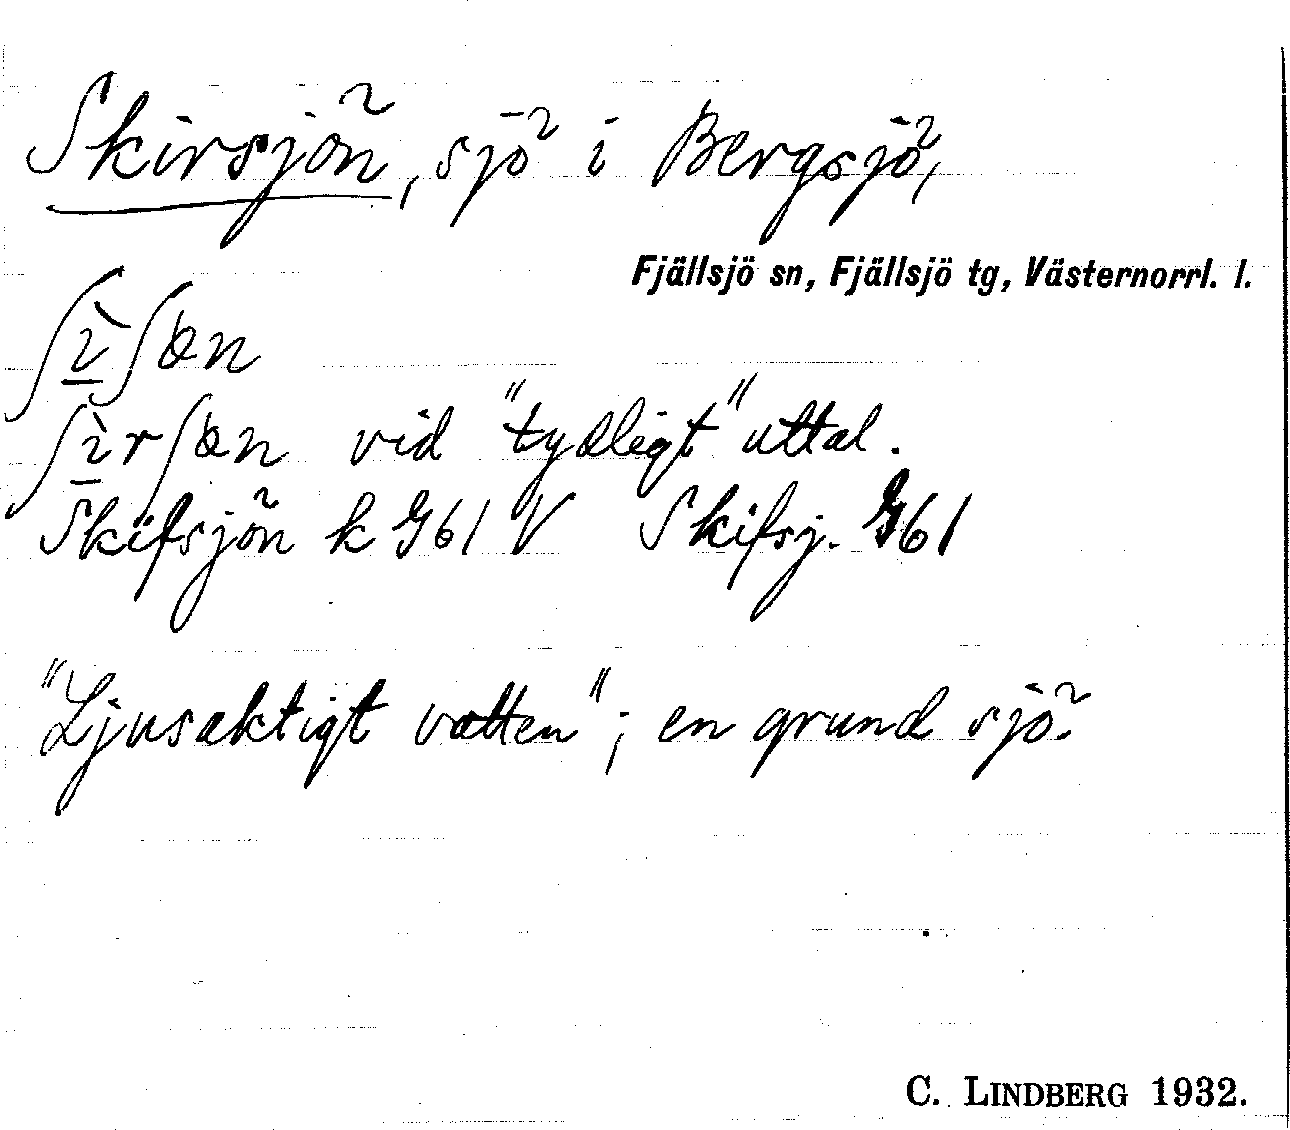 Skirsjön, sjö i Bergsjö,
Fjällsjö sn, Fjällsjö tg, Västernorrl. l.
ʃìʃɵn
ʃìrʃɵn vid "tydligt" uttal.
Skifsjön k G61 V Skifsj. G61
"Ljusaktigt vatten"; en grund sjö.
C. LINDBERG 1932.